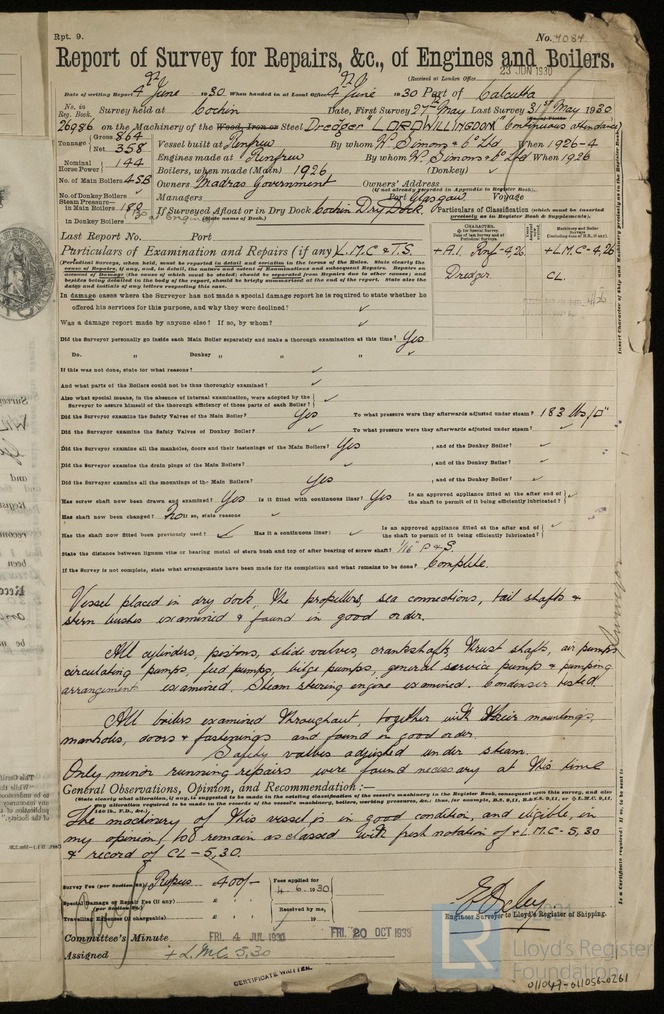 Rpt. 9.
No. 7087
Report of Survey for Repairs, &c., of Engines and Boilers.
(Received at London Office 23 JUN 1930
Date of writing Report 4th June 1930 When handed in at Local Office 4th June 1930 Port of Calcutta
No. in Reg. Book. Survey held at Cochin Date, First Survey 27th May Last Survey 31st May 1930
26986 on the Machinery of the Wood, Iron or Steel Dredger "LORD WILLINGDON" (Continuous attendance)
Tonnage Gross 864 Net 358 Vessel built at Renfrew By whom W. Simons & Co Ltd When 1926-4
Nominal Horse Power 144 Engines made at Renfrew By whom W. Simons & Co Ltd When 1926
Boilers, when made (Main) 1926 (Donkey) ✓
No. of Main Boilers 4SB Owners Madras Government Owners' Address
(if not already recorded in Appendix to Register Book.)
No. of Donkey Boilers Port Glasgow Voyage
Steam Pressure in Main Boilers 180 If Surveyed Afloat or in Dry Dock Cochin Dry Dock
in Donkey Boilers (State name of Dock.)
Particulars of Classification (which must be inserted precisely as in Register Book & Supplements).
Last Report No. Port
Particulars of Examination and Repairs (if any) L.M.C & T.S.
+A.1. Renf-4,26 +L.M.C-4,26
Dredger CL.
In damage cases where the Surveyor has not made a special damage report he is required to state whether he
offered his services for this purpose, and why they were declined? ✓
Was a damage report made by anyone else? If so, by whom? ✓
Did the Surveyor personally go inside each Main Boiler separately and make a thorough examination at this time? Yes
Do. " Donkey " " " ✓
If this was not done, state for what reasons? ✓
And what parts of the Boilers could not be thus thoroughly examined? ✓
Also what special means, in the absence of internal examination, were adopted by the
Surveyor to assure himself of the thorough efficiency of those parts of each Boiler? ✓
Did the Surveyor examine the Safety Valves of the Main Boiler? Yes To what pressure were they afterwards adjusted under steam? 183 lbs/□"
Did the Surveyor examine the Safety Valves of Donkey Boiler? ✓ To what pressure were they afterwards adjusted under steam? ✓
Did the Surveyor examine all the manholes, doors and their fastenings of the Main Boilers? Yes , and of the Donkey Boiler? ✓
Did the Surveyor examine the drain plugs of the Main Boilers? ✓ , and of the Donkey Boiler? ✓
Did the Surveyor examine all the mountings of the Main Boilers? Yes , and of the Donkey Boiler? ✓
Has screw shaft now been drawn and examined? Yes Is it fitted with continuous liner? Yes Is an approved appliance fitted at the after end of the shaft to permit of it being efficiently lubricated? ✓
Has shaft now been changed? No If so, state reasons ✓
Has the shaft now fitted been previously used? ✓ Has it a continuous liner? ✓ Is an approved appliance fitted at the after end of the shaft to permit of it being efficiently lubricated? ✓
State the distance between lignum vitæ or bearing metal of stern bush and top of after bearing of screw shaft? 1/16" P & S.
If the Survey is not complete, state what arrangements have been made for its completion and what remains to be done? Complete.
Vessel placed in dry dock, the propellers, sea connections, tail shafts &
stern bushes examined & found in good order.
All cylinders, pistons, slide valves, crankshafts, thrust shafts, air pumps
circulating pumps, feed pumps, bilge pumps, general service pump & pumping
arrangement examined. Steam steering engine examined. Condenser tested.
All boilers examined throughout, together with their mountings,
manholes, doors & fastenings and found in good order.
Safety valves adjusted under steam.
Only minor running repairs were found necessary at this time
General Observations, Opinion, and Recommendation:—
(State clearly what alteration, if any, is suggested to be made in the existing classification of the vessel's machinery in the Register Book, consequent upon this survey, and also
The machinery of this vessel is in good condition, and eligible, in
my opinion, to remain as classed with fresh notation of +L.M.C-5,30
& record of CL-5,30.
Survey Fee (per Section 29) Rupees 400/- Fees applied for 4.6.1930
Special Damage or Repair Fee (if any) (per Section 29.)
Travelling Expenses (if chargeable) Received by me, 19
Engineer Surveyor to Lloyd's Register of Shipping.
Committee's Minute FRI. 4 JUL 1930 FRI. 20 OCT 1933
Assigned + L.M.C. 5,30
CERTIFICATE WRITTEN.
Lloyd's Register
Foundation
011047-011056-0261